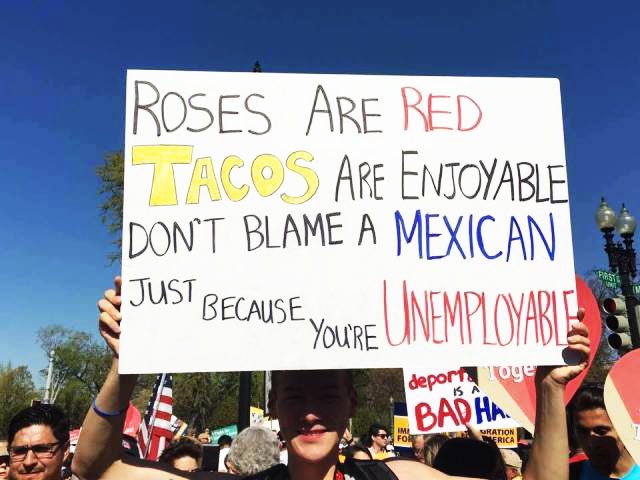 ROSES ARE RED
TACOS ARE ENJOYABLE
DON'T BLAME A MEXICAN
JUST BECAUSE YOU'RE UNEMPLOYABLE
FIRST
deport
IS A
BAD HA
Toge
GRATION
FOR
ERICA